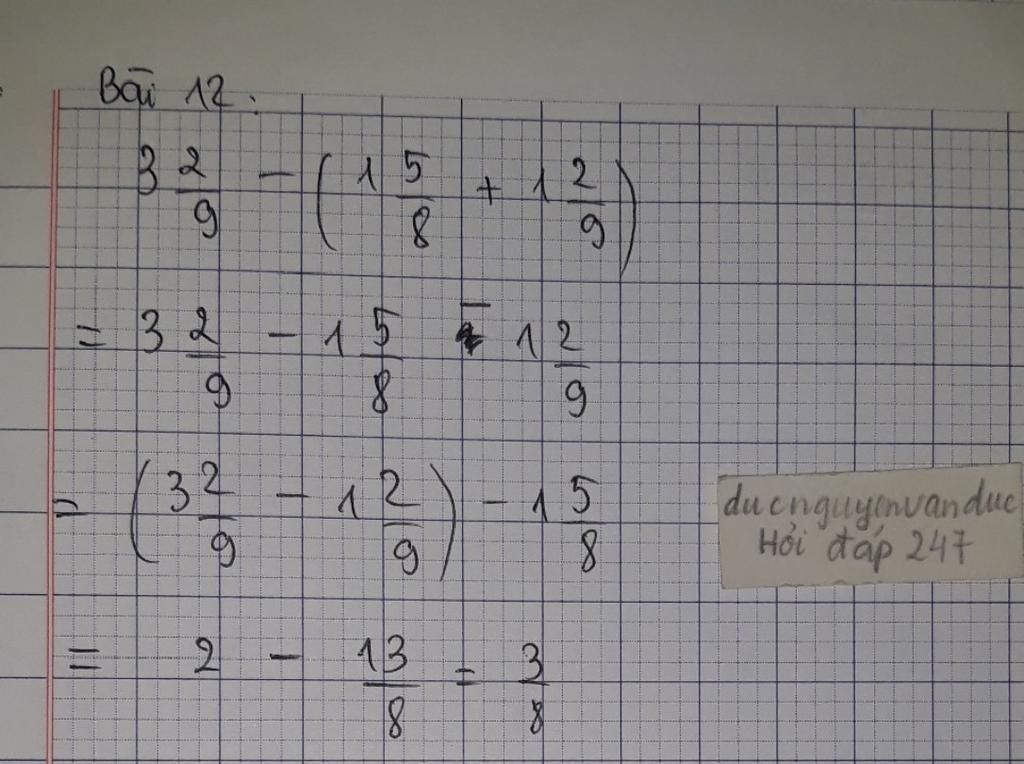 Bài 12:
3 2/9 - (1 5/8 + 1 2/9)
= 3 2/9 - 1 5/8 - 1 2/9
= (3 2/9 - 1 2/9) - 1 5/8
ducnguyenvanduc
Hỏi đáp 247
= 2 - 13/8 = 3/8